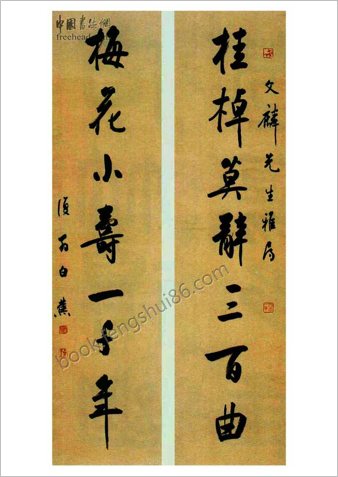 中國書法網
文麟先生雅属
桂棹莫辭三百曲
梅花小壽一千年
復翁白蕉
bookfengshui86.com